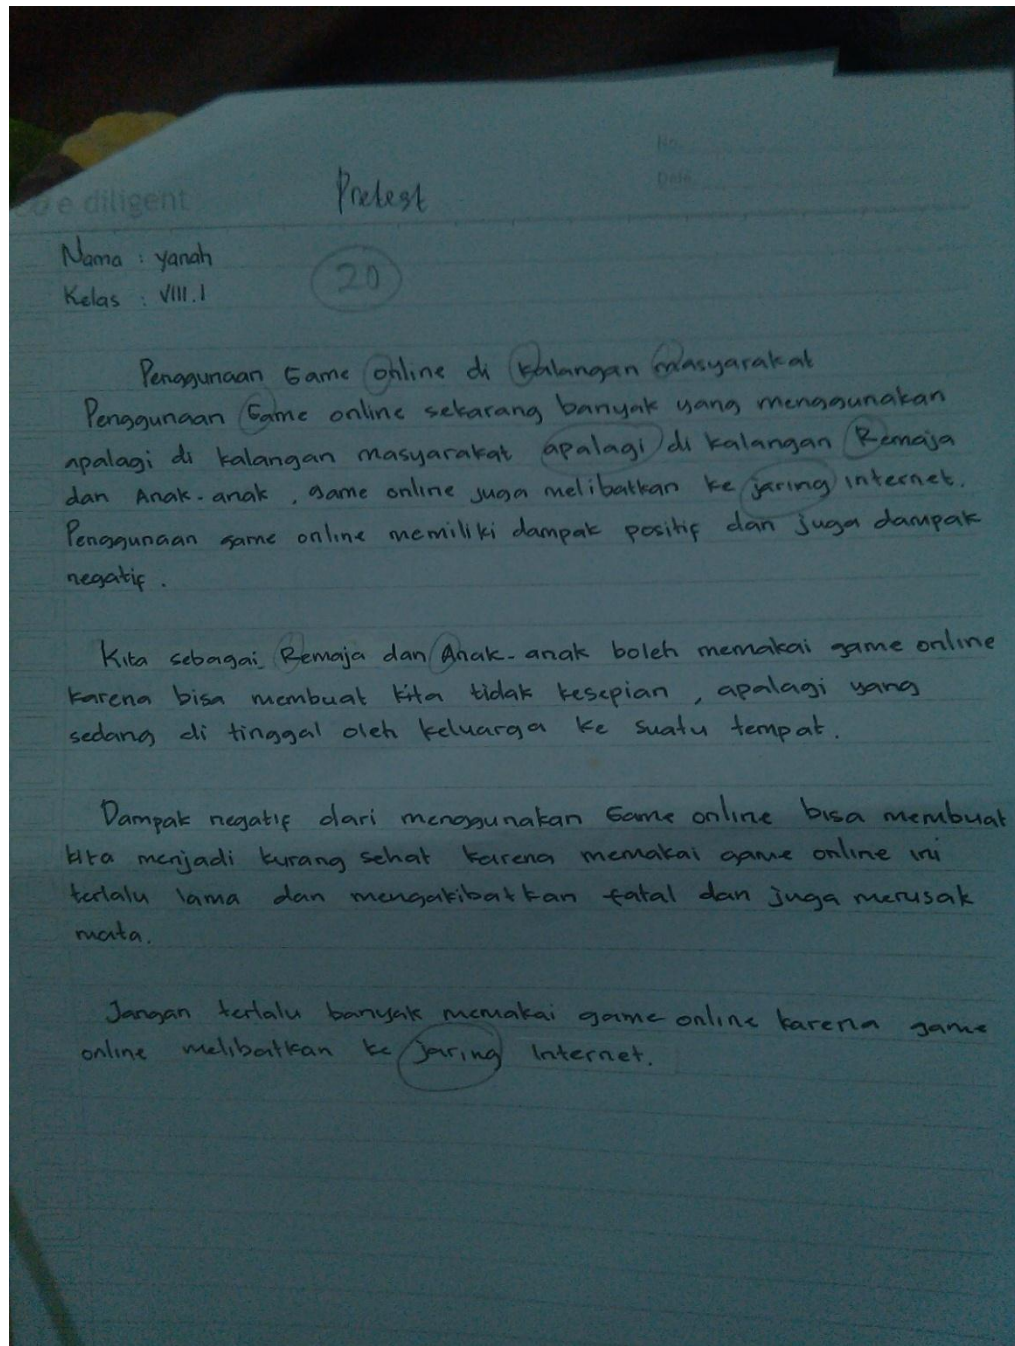 No.
Date
e diligent
Pretest
Nama : yanah
20
Kelas : VIII.1
Penggunaan Game online di kalangan masyarakat
Penggunaan Game online sekarang banyak yang menggunakan
apalagi di kalangan masyarakat apalagi di kalangan Remaja
dan Anak-anak, game online juga melibatkan ke jaring internet.
Penggunaan game online memiliki dampak positif dan juga dampak
negatif.
Kita sebagai Remaja dan Anak-anak boleh memakai game online
karena bisa membuat kita tidak kesepian, apalagi yang
sedang di tinggal oleh keluarga ke suatu tempat.
Dampak negatif dari menggunakan Game online bisa membuat
kita menjadi kurang sehat karena memakai game online ini
terlalu lama dan mengakibatkan fatal dan juga merusak
mata.
Jangan terlalu banyak memakai game online karena game
online melibatkan ke jaring Internet.